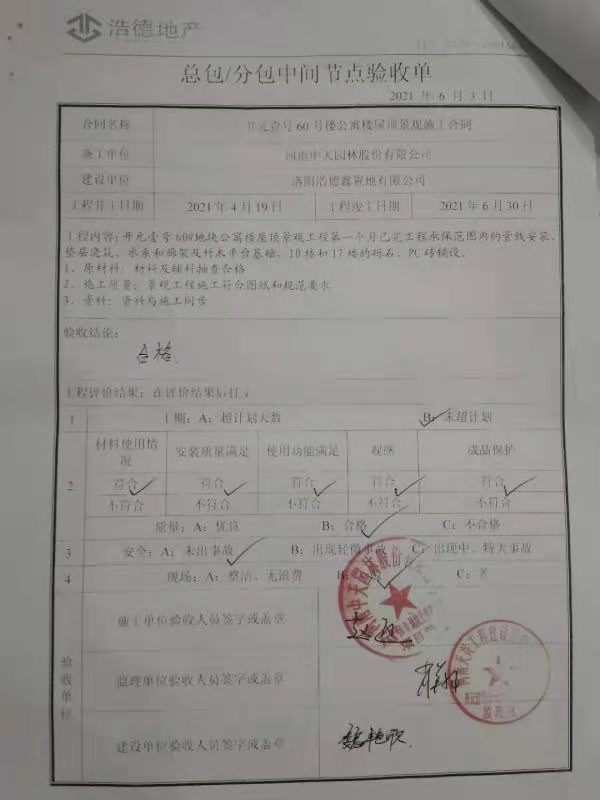 浩德地产
总包/分包中间节点验收单
2021 年 6 月 3 日
合同名称 开元壹号60号楼公寓楼屋顶景观施工合同
施工单位 河南中天园林股份有限公司
建设单位 洛阳浩德鑫置地有限公司
工程开工日期 2021年4月19日 工程竣工日期 2021年6月30日
工程内容:开元壹号60#地块公寓楼屋顶景观工程第一个月已完工程承保范围内的管线安装、
垫层浇筑、水系和廊架及竹木平台基础、10楼和17楼的砾石、PC砖铺设。
1、原材料:材料及辅料抽查合格
2、施工质量:景观工程施工符合图纸和规范要求
3、资料:资料与施工同步
验收结论:
合格
工程评价结果:在评价结果后打√
1 工期:A:超计划天数 B:未超计划
材料使用情况 安装质量满足 使用功能满足 观感 成品保护
2 符合 符合 符合 符合 符合
不符合 不符合 不符合 不符合 不符合
质量:A:优良 B:合格 C:不合格
3 安全:A:未出事故 B:出现轻微事故 C:出现中、特大事故
4 现场:A:整洁、无浪费 B: C:差
验收单位
施工单位验收人员签字或盖章
监理单位验收人员签字或盖章
建设单位验收人员签字或盖章
中天园林股份
项目部
监理部